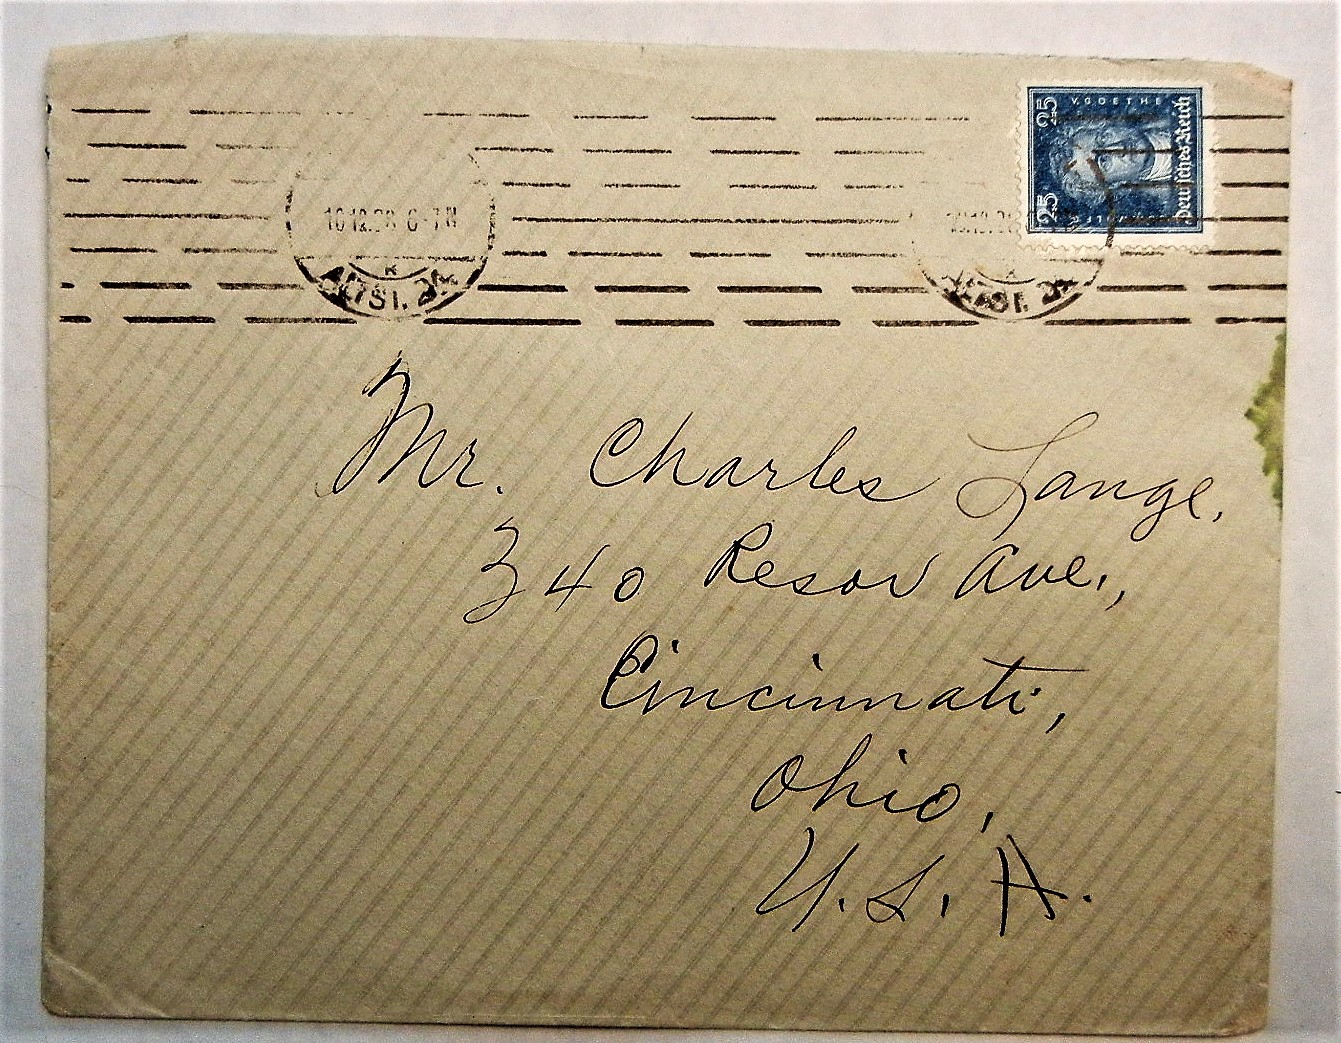 25 V. GOETHE 25
Deutsches Reich
10.12.28 6-7 N
K
Mr. Charles Lange,
340 Resor Ave.,
Cincinnati,
Ohio,
U.S.A.